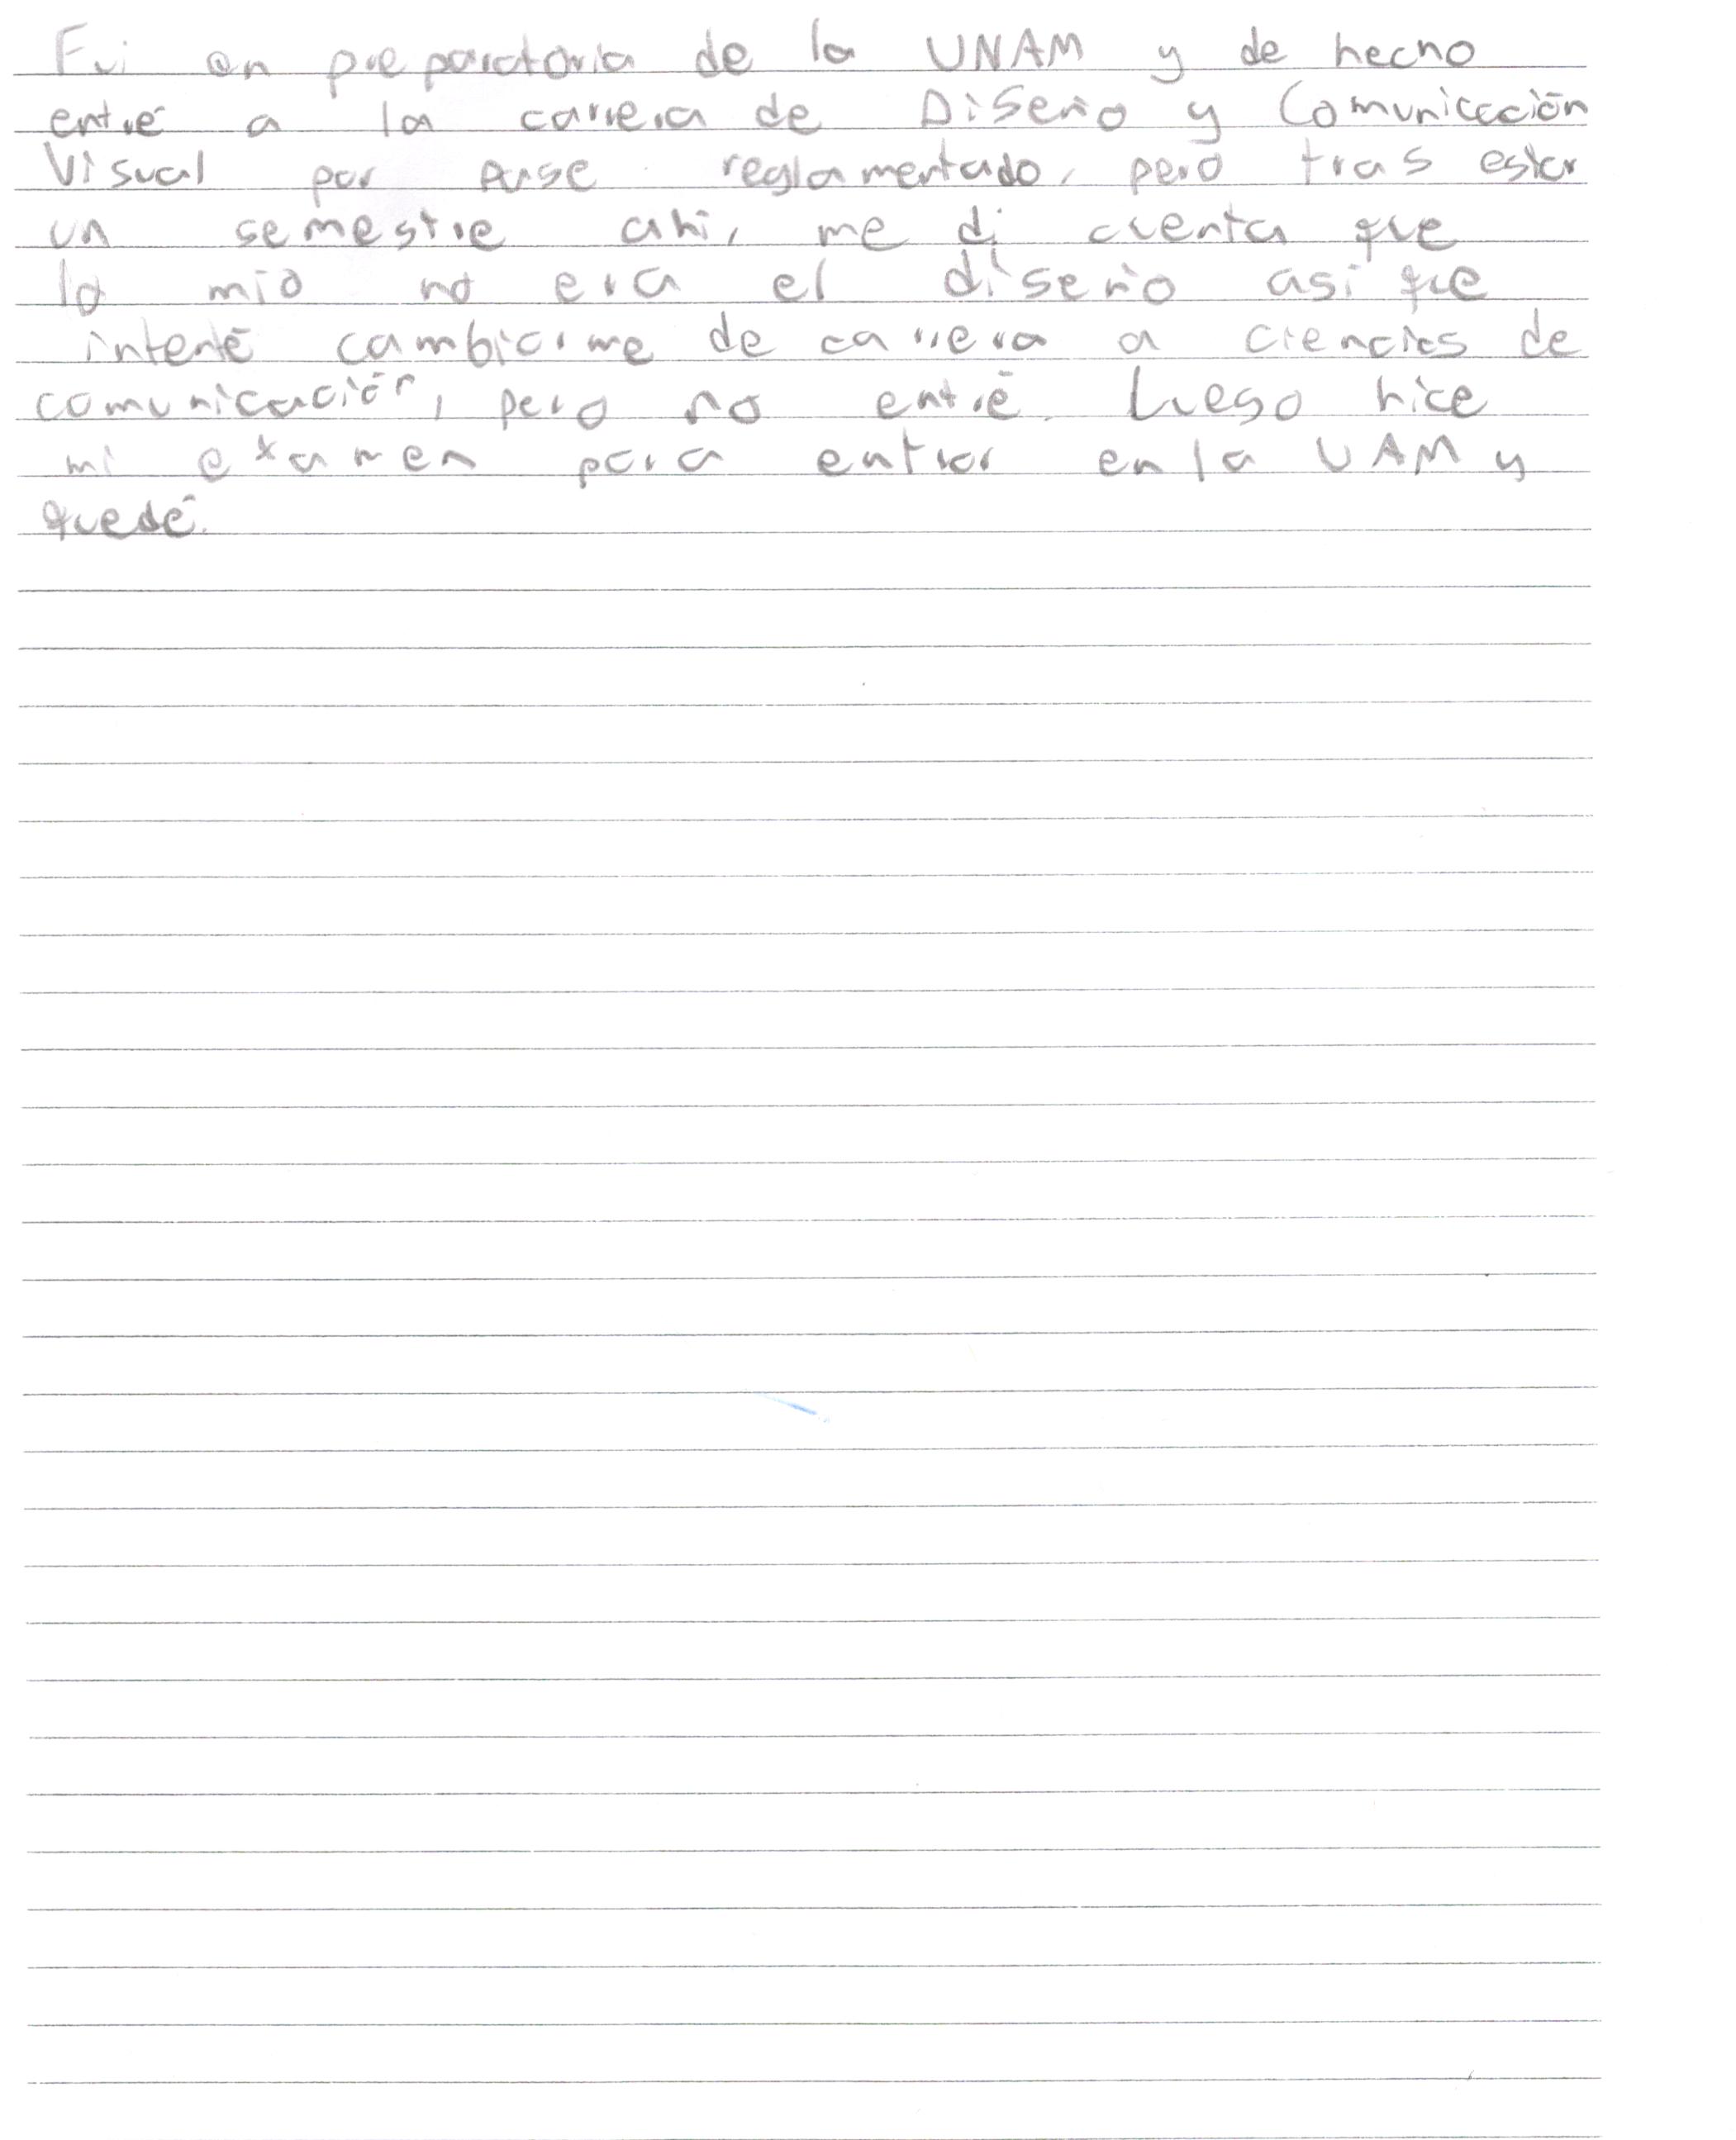 Fui en preparatoria de la UNAM y de hecho
entré a la carrera de Diseño y Comunicación
Visual por pase reglamentado, pero tras estar
un semestre ahi, me di cuenta que
lo mio no era el diseño asi que
intenté cambiarme de carrera a ciencias de
comunicación, pero no entré. Luego hice
mi examen para entrar en la UAM y
quedé.